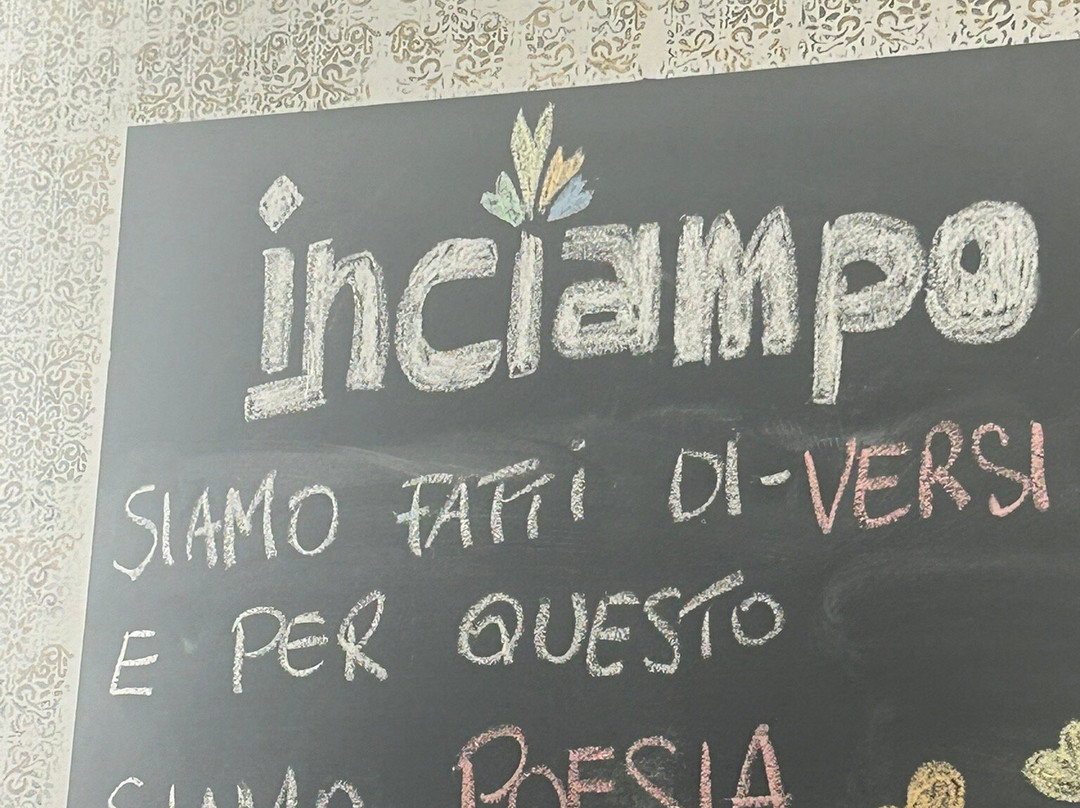 inciampo
SIAMO FATTi DI-VERSI
E PER QUESTO
SIAMO POESIA